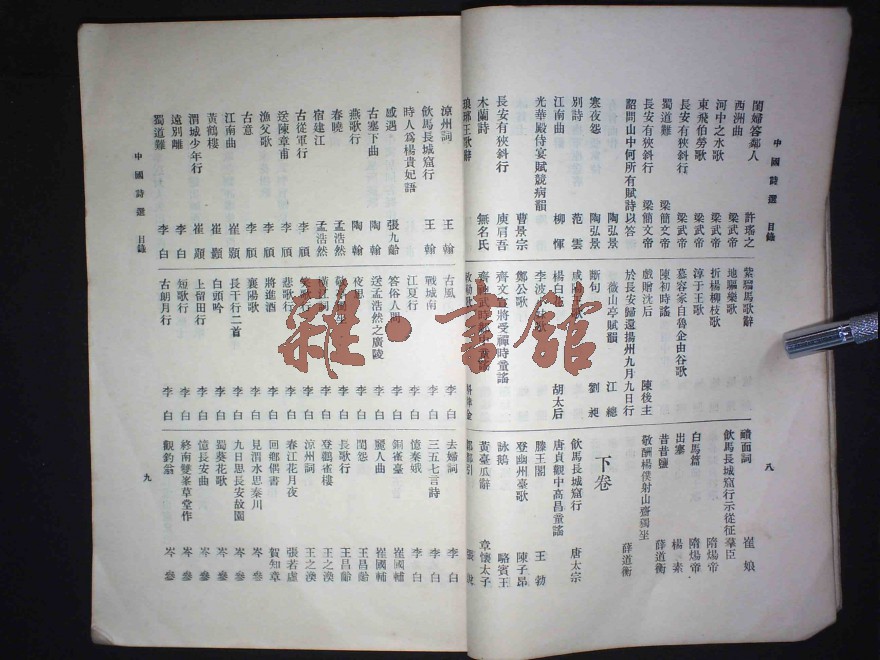 中國詩選 目錄
八
閨婦答鄰人 許瑤之
西洲曲 梁武帝
河中之水歌 梁武帝
東飛伯勞歌 梁武帝
長安有狹斜行 梁武帝
蜀道難 梁簡文帝
長安有狹斜行 梁簡文帝
詔問山中何所有賦詩以答 陶弘景
寒夜怨 陶弘景
別詩 范雲
江南曲 柳惲
光華殿侍宴賦競病韻 曹景宗
長安有狹斜行 庾肩吾
木蘭詩 無名氏
琅琊王歌辭
紫騮馬歌辭
地驅樂歌
折楊柳枝歌
淳于王歌
慕容家自魯企由谷歌
陳初時謠
戲贈沈后 陳後主
於長安歸還揚州九月九日行
薇山亭賦韻 江總
斷句 劉昶
咸陽王歌
楊白花 胡太后
李波小妹歌
鄭公歌
齊文宣將受禪時童謠
齊武時童謠
敕勒歌 斛律金
靧面詞 崔娘
飲馬長城窟行示從征羣臣
隋煬帝
白馬篇 隋煬帝
出塞 楊素
昔昔鹽 薛道衡
敬酬楊僕射山齋獨坐
薛道衡
下卷
飲馬長城窟行 唐太宗
唐貞觀中高昌童謠
滕王閣 王勃
登幽州臺歌 陳子昂
詠鵝 駱賓王
黃臺瓜辭 章懷太子
鄴都引 張說
涼州詞 王翰
飲馬長城窟行 王翰
時人為楊貴妃語
感遇 張九齡
古塞下曲 陶翰
燕歌行 陶翰
春曉 孟浩然
宿建江 孟浩然
古從軍行 李頎
送陳章甫 李頎
漁父歌 李頎
古意 李頎
江南曲 崔顥
黃鶴樓 崔顥
渭城少年行 崔顥
遠別離 李白
蜀道難 李白
古風 李白
戰城南 李白
江夏行 李白
答俗人問 李白
送孟浩然之廣陵 李白
夜思 李白
橫江詞 李白
笑歌行 李白
悲歌行 李白
將進酒 李白
襄陽歌 李白
長干行二首 李白
白頭吟 李白
上留田行 李白
短歌行 李白
古朗月行 李白
去婦詞 李白
三五七言詩 李白
憶秦娥 李白
銅雀臺 崔國輔
麗人曲 崔國輔
閨怨 王昌齡
長歌行 王昌齡
登鸛雀樓 王之渙
涼州詞 王之渙
春江花月夜 張若虛
回鄉偶書 賀知章
見渭水思秦川 岑參
九日思長安故園 岑參
蜀葵花歌 岑參
憶長安曲 岑參
終南雙峯草堂作 岑參
觀釣翁 岑參
中國詩選 目錄
九
雜·書館